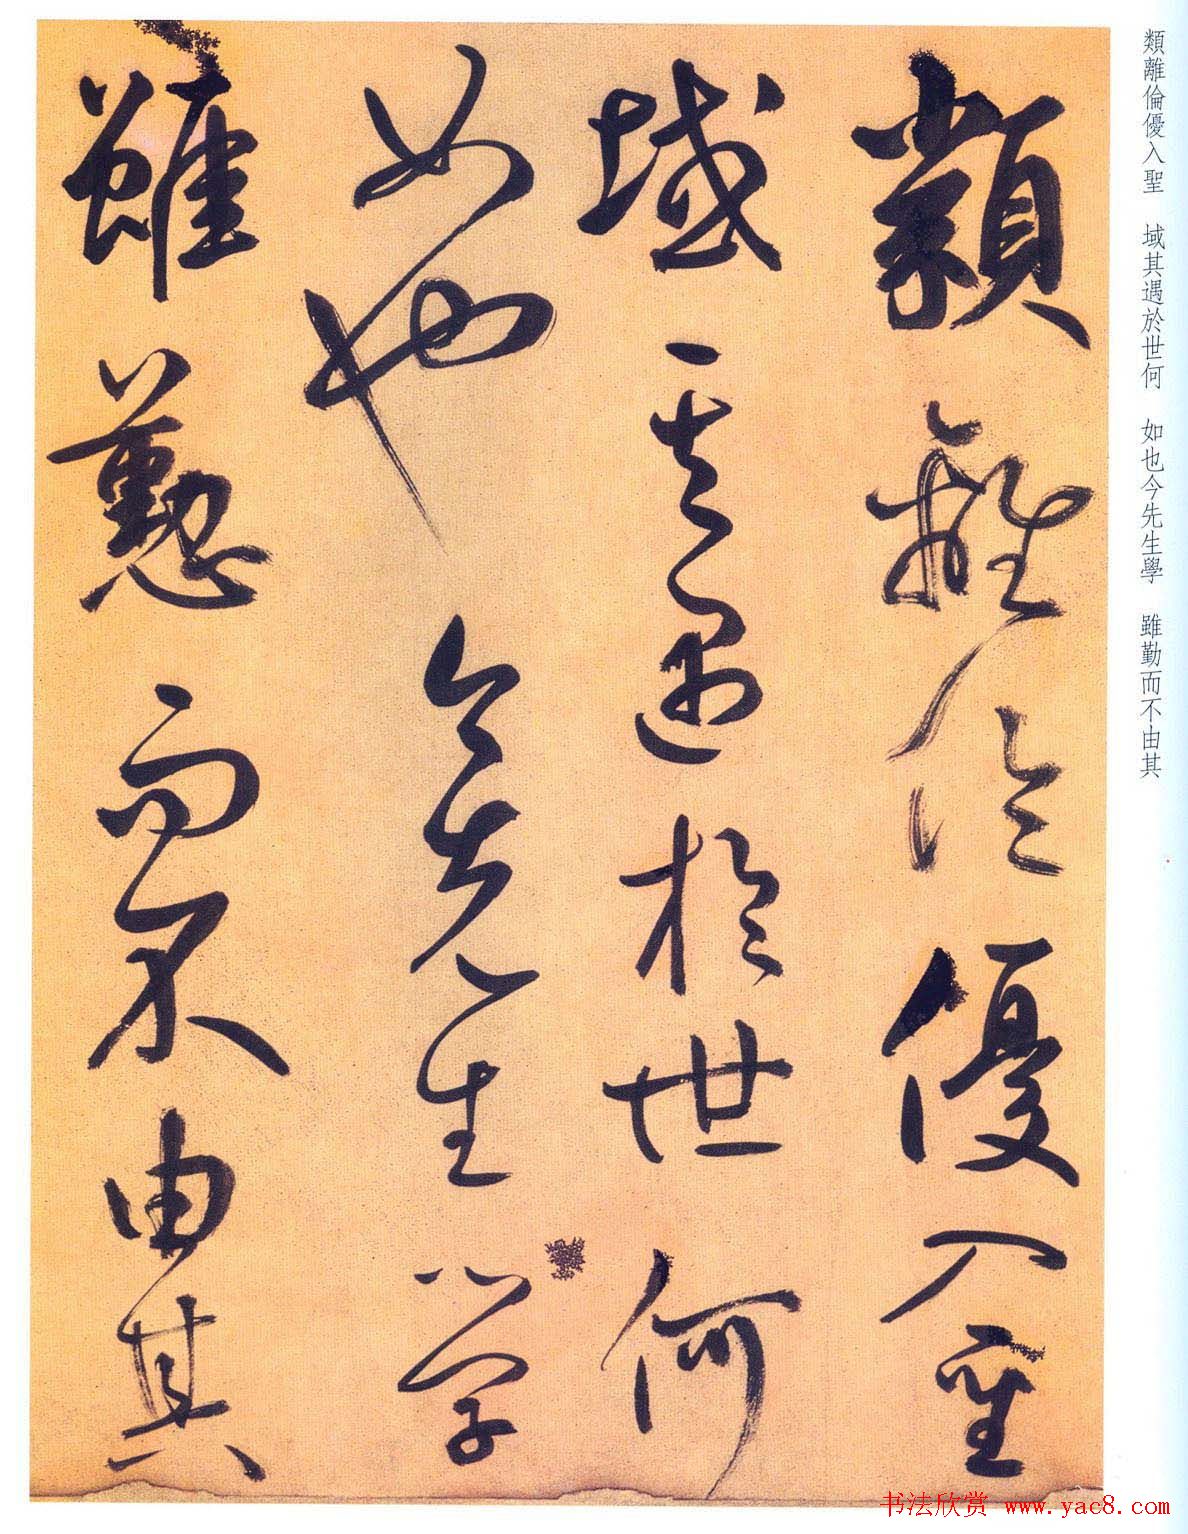 類離倫優入聖
域其遇於世何
如也今先生學
雖勤而不由其
類離倫優入聖 域其遇於世何 如也今先生學 雖勤而不由其
书法欣赏 www.yac8.com